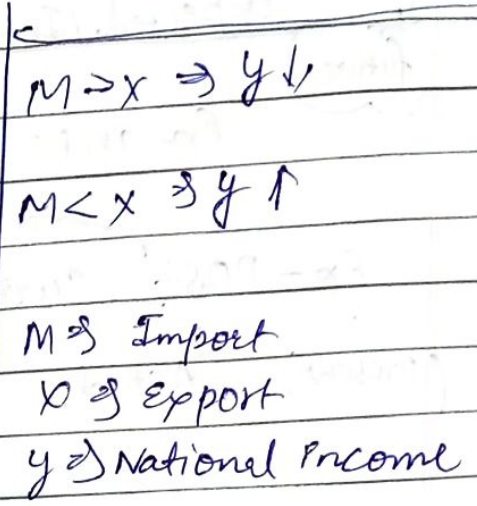 M > X ⇒ y ↓
M < X ⇒ y ↑
M ⇒ Import
X ⇒ Export
y ⇒ National Income